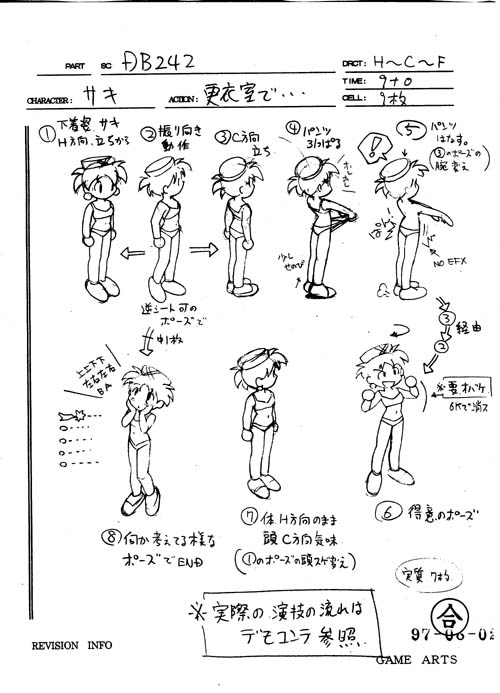 PART SC DB242 DRCT: H～C～F
TIME: 9+0
CHARACTER: サキ ACTION: 更衣室で・・・ CELL: 9枚
① 下着姿 サキ
H方向、立ちから
② 振り向き
動作
③ C方向
立ち
④ パンツ
引っぱる
⑤ パンツ
はなす。
(③のポーズの
腕変え)
!
少し
せのび
NO EFX
逆シート可の
ポーズで
中1枚
③
②
経由
上上下下
左右左右
BA
※要オバケ
6Kで消ス
⑥ 得意のポーズ
⑦ 体H方向のまま
頭C方向気味
(①のポーズの頭スゲ変え)
⑧ 何か考えてる様な
ポーズでEND
実質7枚
※実際の演技の流れは
デモコンテ参照
合
97-06-02
REVISION INFO
GAME ARTS